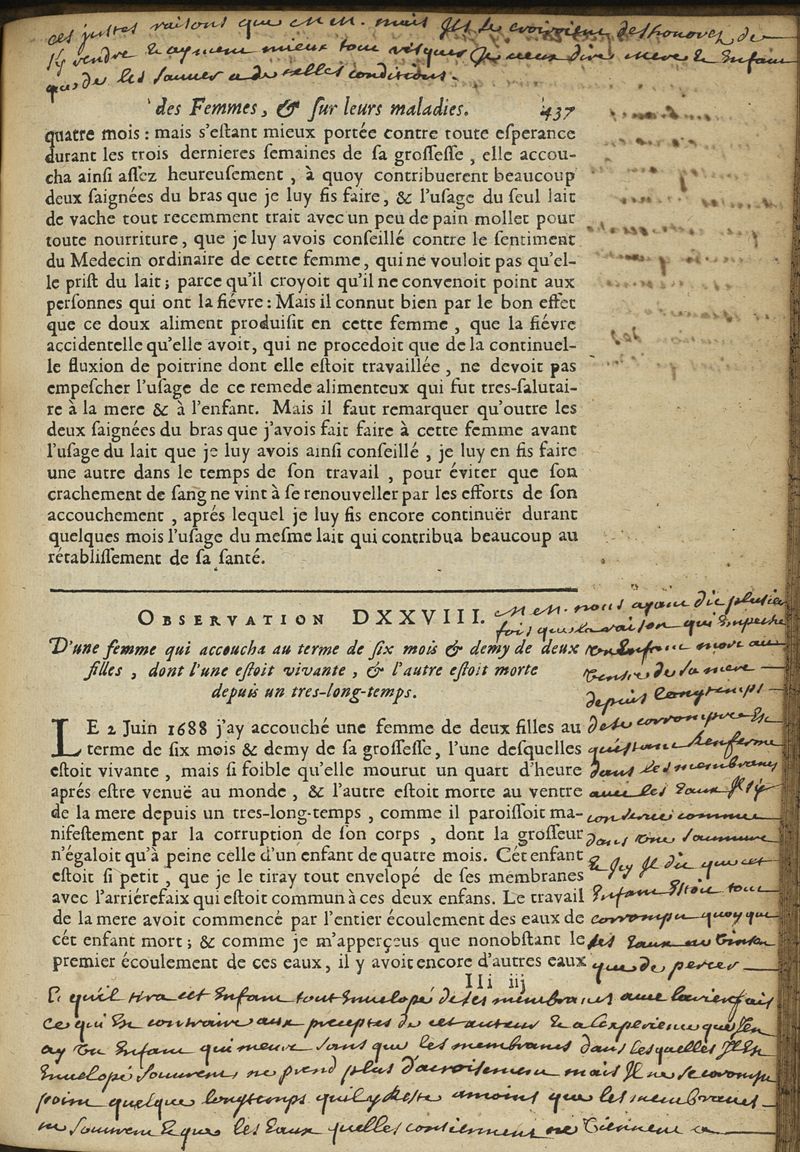 ces justes raisons que M M. mais Ils se croiroient deshonorez de
s'y rendre & ayment mieux tout risquer Je veux dire mere & Enfant
que de les sauver a de telles conditions.
des Femmes, & sur leurs maladies. 437
quatre mois : mais s'estant mieux portée contre toute esperance
durant les trois dernieres semaines de sa grossesse, elle accou-
cha ainsi assez heureusement, à quoy contribuerent beaucoup
deux saignées du bras que je luy fis faire, & l'usage du seul lait
de vache tout recemment trait avec un peu de pain mollet pour
toute nourriture, que je luy avois conseillé contre le sentiment
du Medecin ordinaire de cette femme, qui ne vouloit pas qu'el-
le prist du lait; parce qu'il croyoit qu'il ne convenoit point aux
personnes qui ont la fiévre : Mais il connut bien par le bon effet
que ce doux aliment produisit en cette femme, que la fiévre
accidentelle qu'elle avoit, qui ne procedoit que de la continuel-
le fluxion de poitrine dont elle estoit travaillée, ne devoit pas
empescher l'usage de ce remede alimenteux qui fut tres-salutai-
re à la mere & à l'enfant. Mais il faut remarquer qu'outre les
deux saignées du bras que j'avois fait faire à cette femme avant
l'usage du lait que je luy avois ainsi conseillé, je luy en fis faire
une autre dans le temps de son travail, pour éviter que son
crachement de sang ne vint à se renouveller par les efforts de son
accouchement, aprés lequel je luy fis encore continuër durant
quelques mois l'usage du mesme lait qui contribua beaucoup au
rétablissement de sa santé.
OBSERVATION DXXVIII.
D'une femme qui accoucha au terme de six mois & demy de deux
filles, dont l'une estoit vivante, & l'autre estoit morte
depuis un tres-long-temps.
LE 2 Juin 1688 j'ay accouché une femme de deux filles au
terme de six mois & demy de sa grossesse, l'une desquelles
estoit vivante, mais si foible qu'elle mourut un quart d'heure
aprés estre venuë au monde, & l'autre estoit morte au ventre
de la mere depuis un tres-long-temps, comme il paroissoit ma-
nifestement par la corruption de son corps, dont la grosseur
n'égaloit qu'à peine celle d'un enfant de quatre mois. Cét enfant
estoit si petit, que je le tiray tout envelopé de ses membranes
avec l'arriérefaix qui estoit commun à ces deux enfans. Le travail
de la mere avoit commencé par l'entier écoulement des eaux de
cét enfant mort; & comme je m'apperçeus que nonobstant le
premier écoulement de ces eaux, il y avoit encore d'autres eaux
IIi iij
M M. nous ayant dit plusieu
fois que la raison qui Empeche
un Enfant mort au
Ventre de sa mere
depuis longtemps
de se corrompre Est
qu'estant Renfermé
dans les membranes
avec les Eaux Il s'y
conserve comme
dans une saumure
& Icy Il dit que cet
Enfant Estoit tout
corrompu quoy que
les Eaux
que de percer
& qu'il tira cet Enfant tout Envelopé de ses membranes avec l'arierefais
ce qui Est contraire aux preceptes de cet auteur & a l'experience que J'en
ay Un Enfant qui meurt sans que les membranes dans lesquelles Il Est
Envelopé s'ouvrent ne prend plus d'acroisement mais Il ne se corrompt
point quelque longtemps qu'il y Reste a moins que les membranes
ne s'ouvrent & que les Eaux qu'elles contiennent ne Viennent a